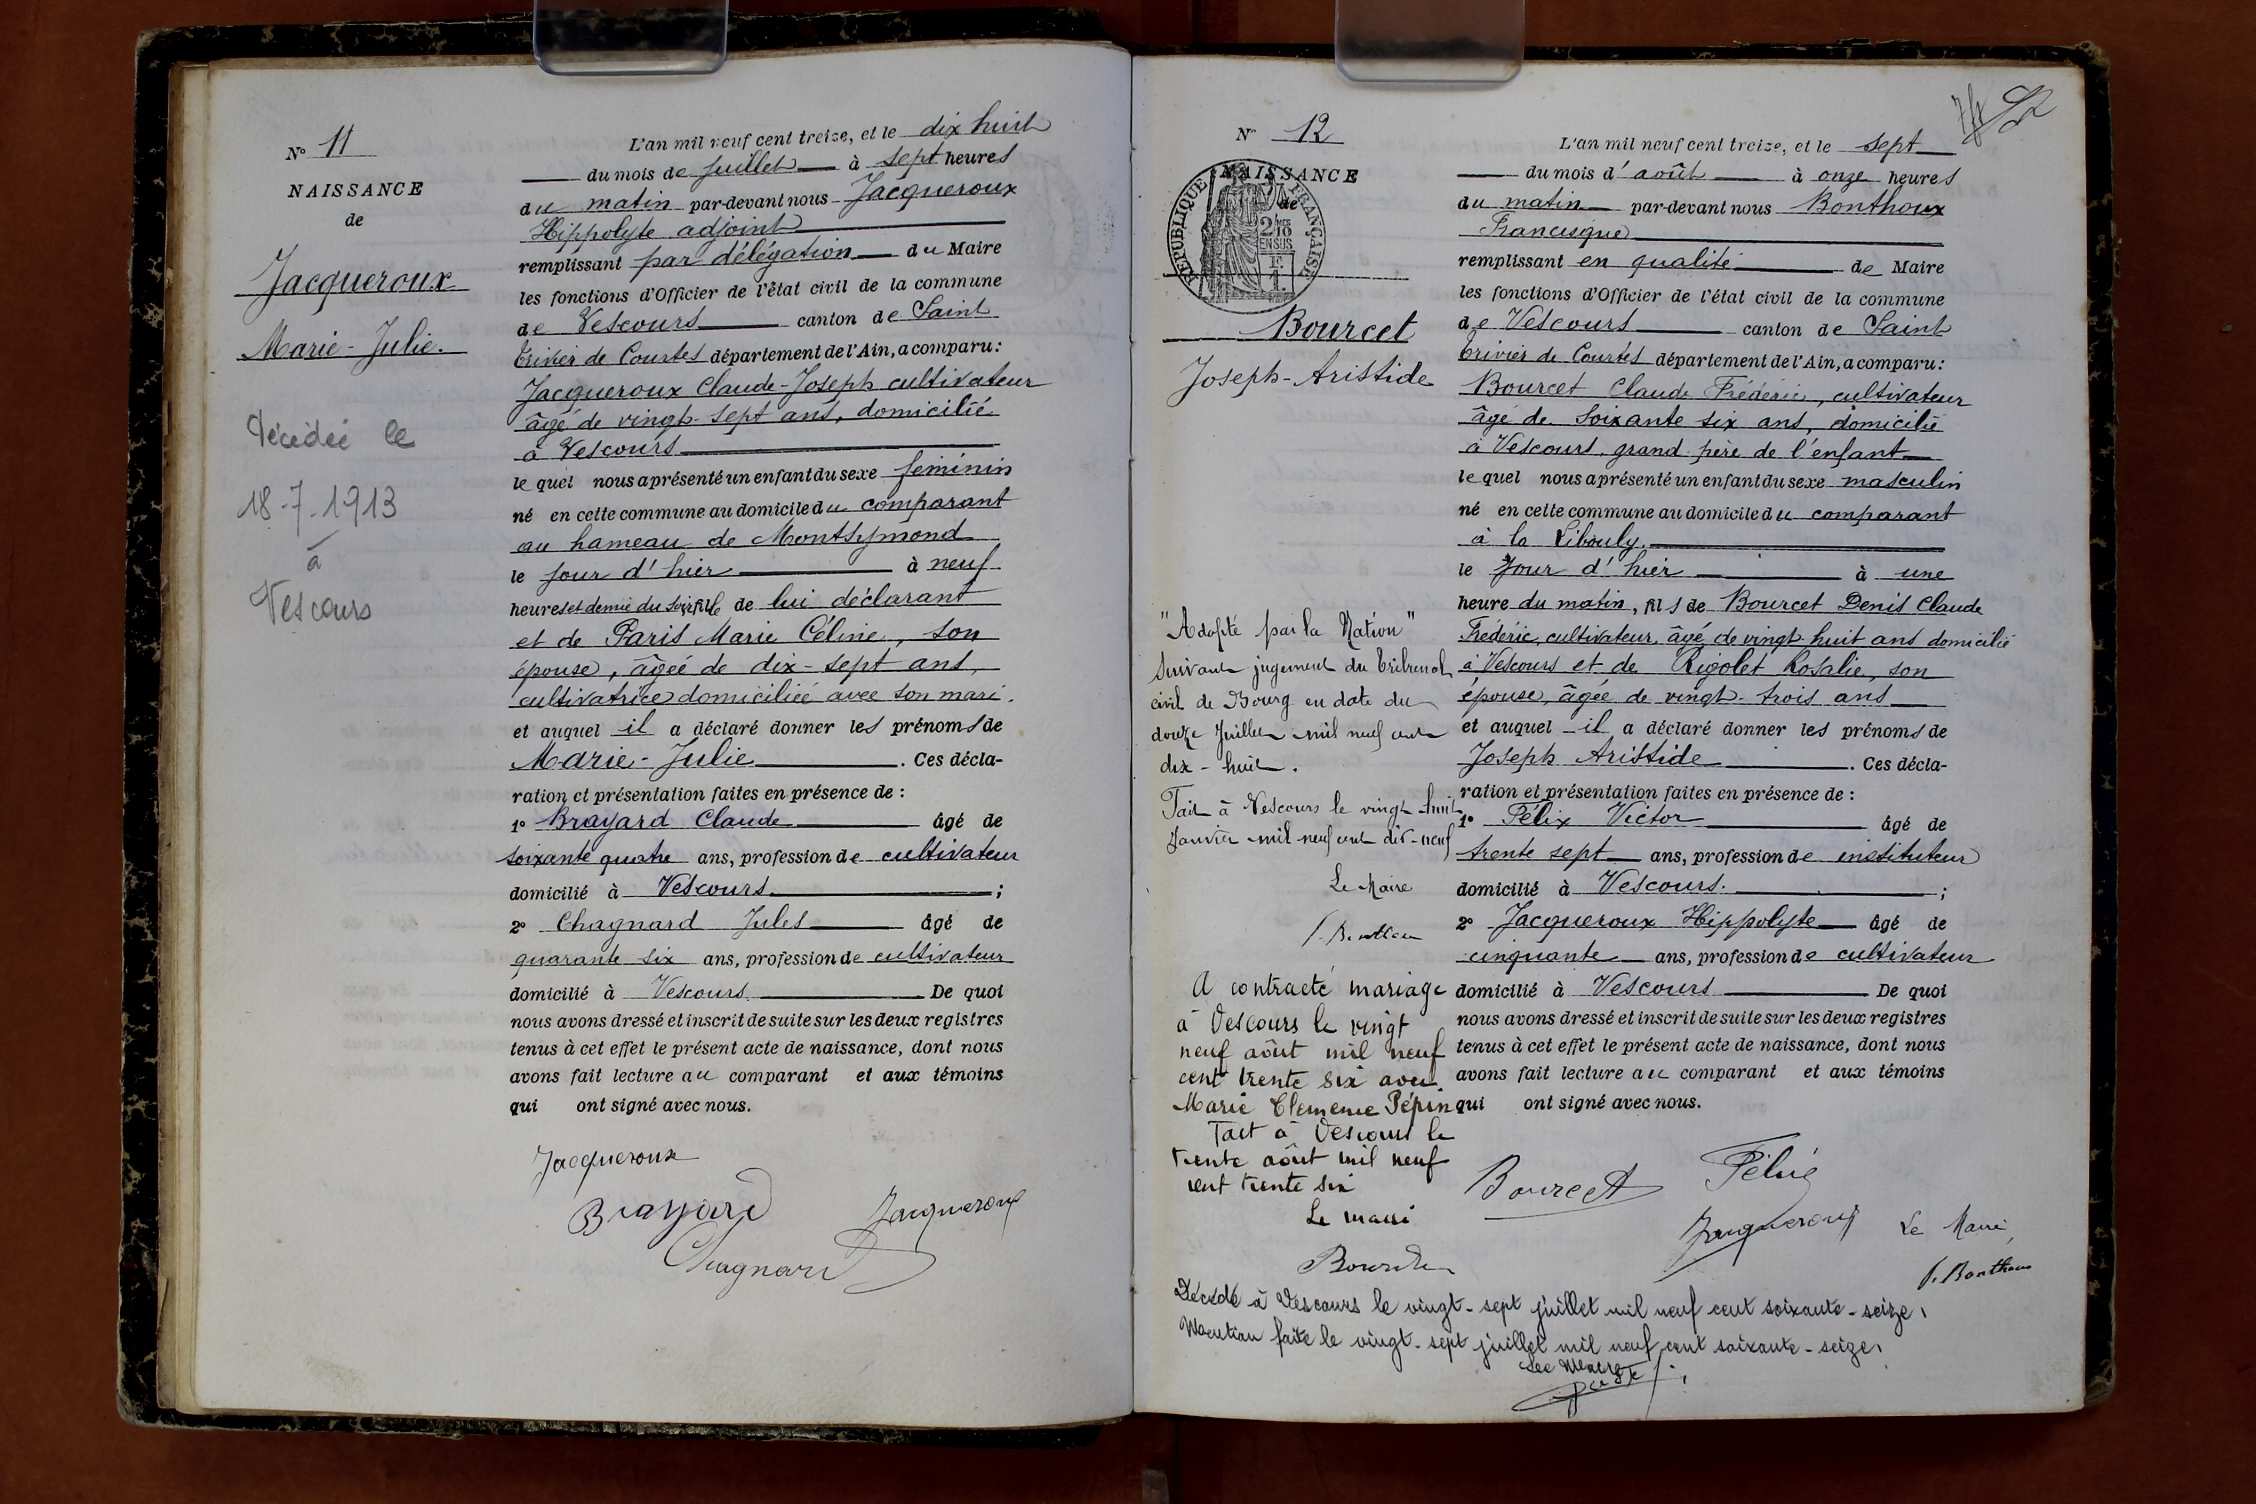 N° 11
NAISSANCE
de
Jacqueroux
Marie-Julie.
Décédée le
18-7-1913
à
Vescours
L'an mil neuf cent treize, et le dix huit
du mois de juillet à sept heures
du matin par-devant nous Jacqueroux
Hippolyte adjoint
remplissant par délégation du Maire
les fonctions d'Officier de l'état civil de la commune
de Vescours canton de Saint
Trivier de Courtes département de l'Ain, a comparu:
Jacqueroux Claude-Joseph cultivateur
âgé de vingt-sept ans, domicilié
à Vescours
le quel nous a présenté un enfant du sexe féminin
né en cette commune au domicile du comparant
au hameau de Montsymond
le jour d'hier à neuf
heures et demie du soir, fille de lui déclarant
et de Paris Marie Céline, son
épouse, âgée de dix-sept ans,
cultivatrice domiciliée avec son mari.
et auquel il a déclaré donner les prénoms de
Marie-Julie. Ces décla-
ration et présentation faites en présence de :
1° Brayard Claude âgé de
soixante quatre ans, profession de cultivateur
domicilié à Vescours. ;
2° Chagnard Jules âgé de
quarante six ans, profession de cultivateur
domicilié à Vescours. De quoi
nous avons dressé et inscrit de suite sur les deux registres
tenus à cet effet le présent acte de naissance, dont nous
avons fait lecture au comparant et aux témoins
qui ont signé avec nous.
Jacqueroux
Brayard Jacqueroux
Chagnard
N° 12
NAISSANCE
de
RÉPUBLIQUE FRANÇAISE
2/10
EN SUS
F.
1.
Bourcet
Joseph-Aristide
"Adopté par la Nation"
suivant jugement du tribunal
civil de Bourg en date du
douze Juillet mil neuf cent
dix-huit.
Fait à Vescours le vingt huit
Janvier mil neuf cent dix-neuf
Le Maire
f. Bonthoux
A contracté mariage
à Vescours le vingt
neuf août mil neuf
cent trente six avec
Marie Clémence Pépin
Fait à Vescours le
trente août mil neuf
cent trente six
Le maire
L'an mil neuf cent treize, et le sept
du mois d'août à onze heures
du matin par-devant nous Bonthoux
Francisque
remplissant en qualité de Maire
les fonctions d'Officier de l'état civil de la commune
de Vescours canton de Saint
Trivier de Courtes département de l'Ain, a comparu:
Bourcet Claude Frédéric, cultivateur
âgé de soixante six ans, domicilié
à Vescours, grand père de l'enfant
le quel nous a présenté un enfant du sexe masculin
né en cette commune au domicile du comparant
à la Libouly.
le Jour d'hier à une
heure du matin, fils de Bourcet Denis Claude
Frédéric, cultivateur, âgé de vingt-huit ans domicilié
à Vescours et de Rigolet Rosalie, son
épouse, âgée de vingt-trois ans
et auquel il a déclaré donner les prénoms de
Joseph Aristide. Ces décla-
ration et présentation faites en présence de :
1° Félix Victor âgé de
trente sept ans, profession de instituteur
domicilié à Vescours. ;
2° Jacqueroux Hippolyte âgé de
cinquante ans, profession de cultivateur
domicilié à Vescours De quoi
nous avons dressé et inscrit de suite sur les deux registres
tenus à cet effet le présent acte de naissance, dont nous
avons fait lecture au comparant et aux témoins
qui ont signé avec nous.
Bourcet Félix
Jacqueroux Le Maire,
f. Bonthoux
Décédé à Vescours le vingt-sept juillet mil neuf cent soixante-seize.
Mention faite le vingt-sept juillet mil neuf cent soixante-seize.
Le Maire